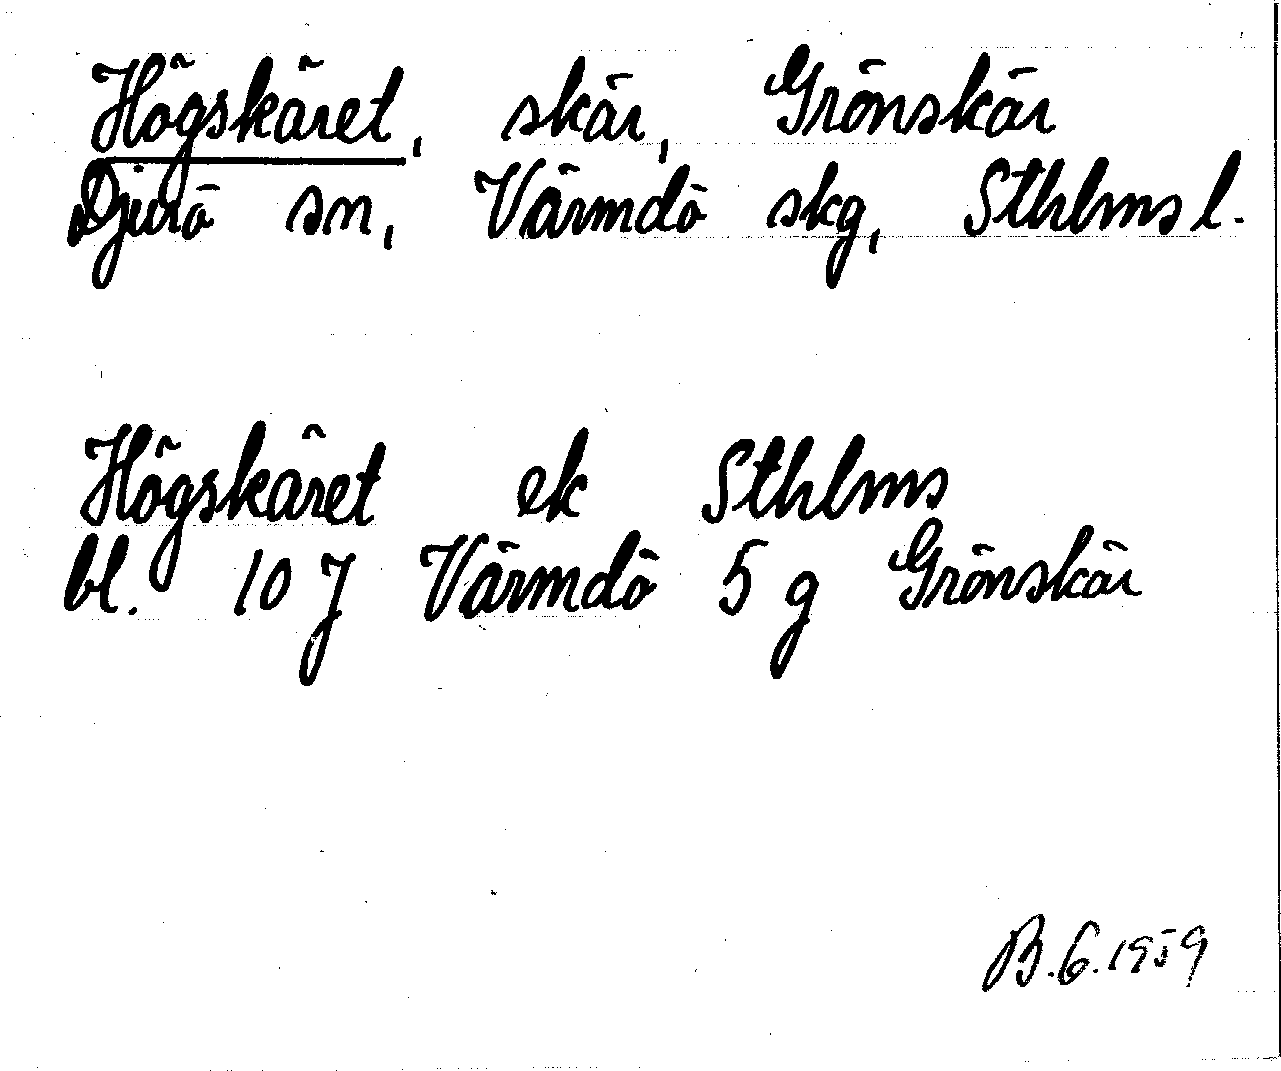 Högskäret, skär, Grönskär
Djurö sn, Värmdö skg, Sthlms l.
Högskäret ek Sthlms
bl. 10 J Värmdö 5 g Grönskär
B.G. 1959